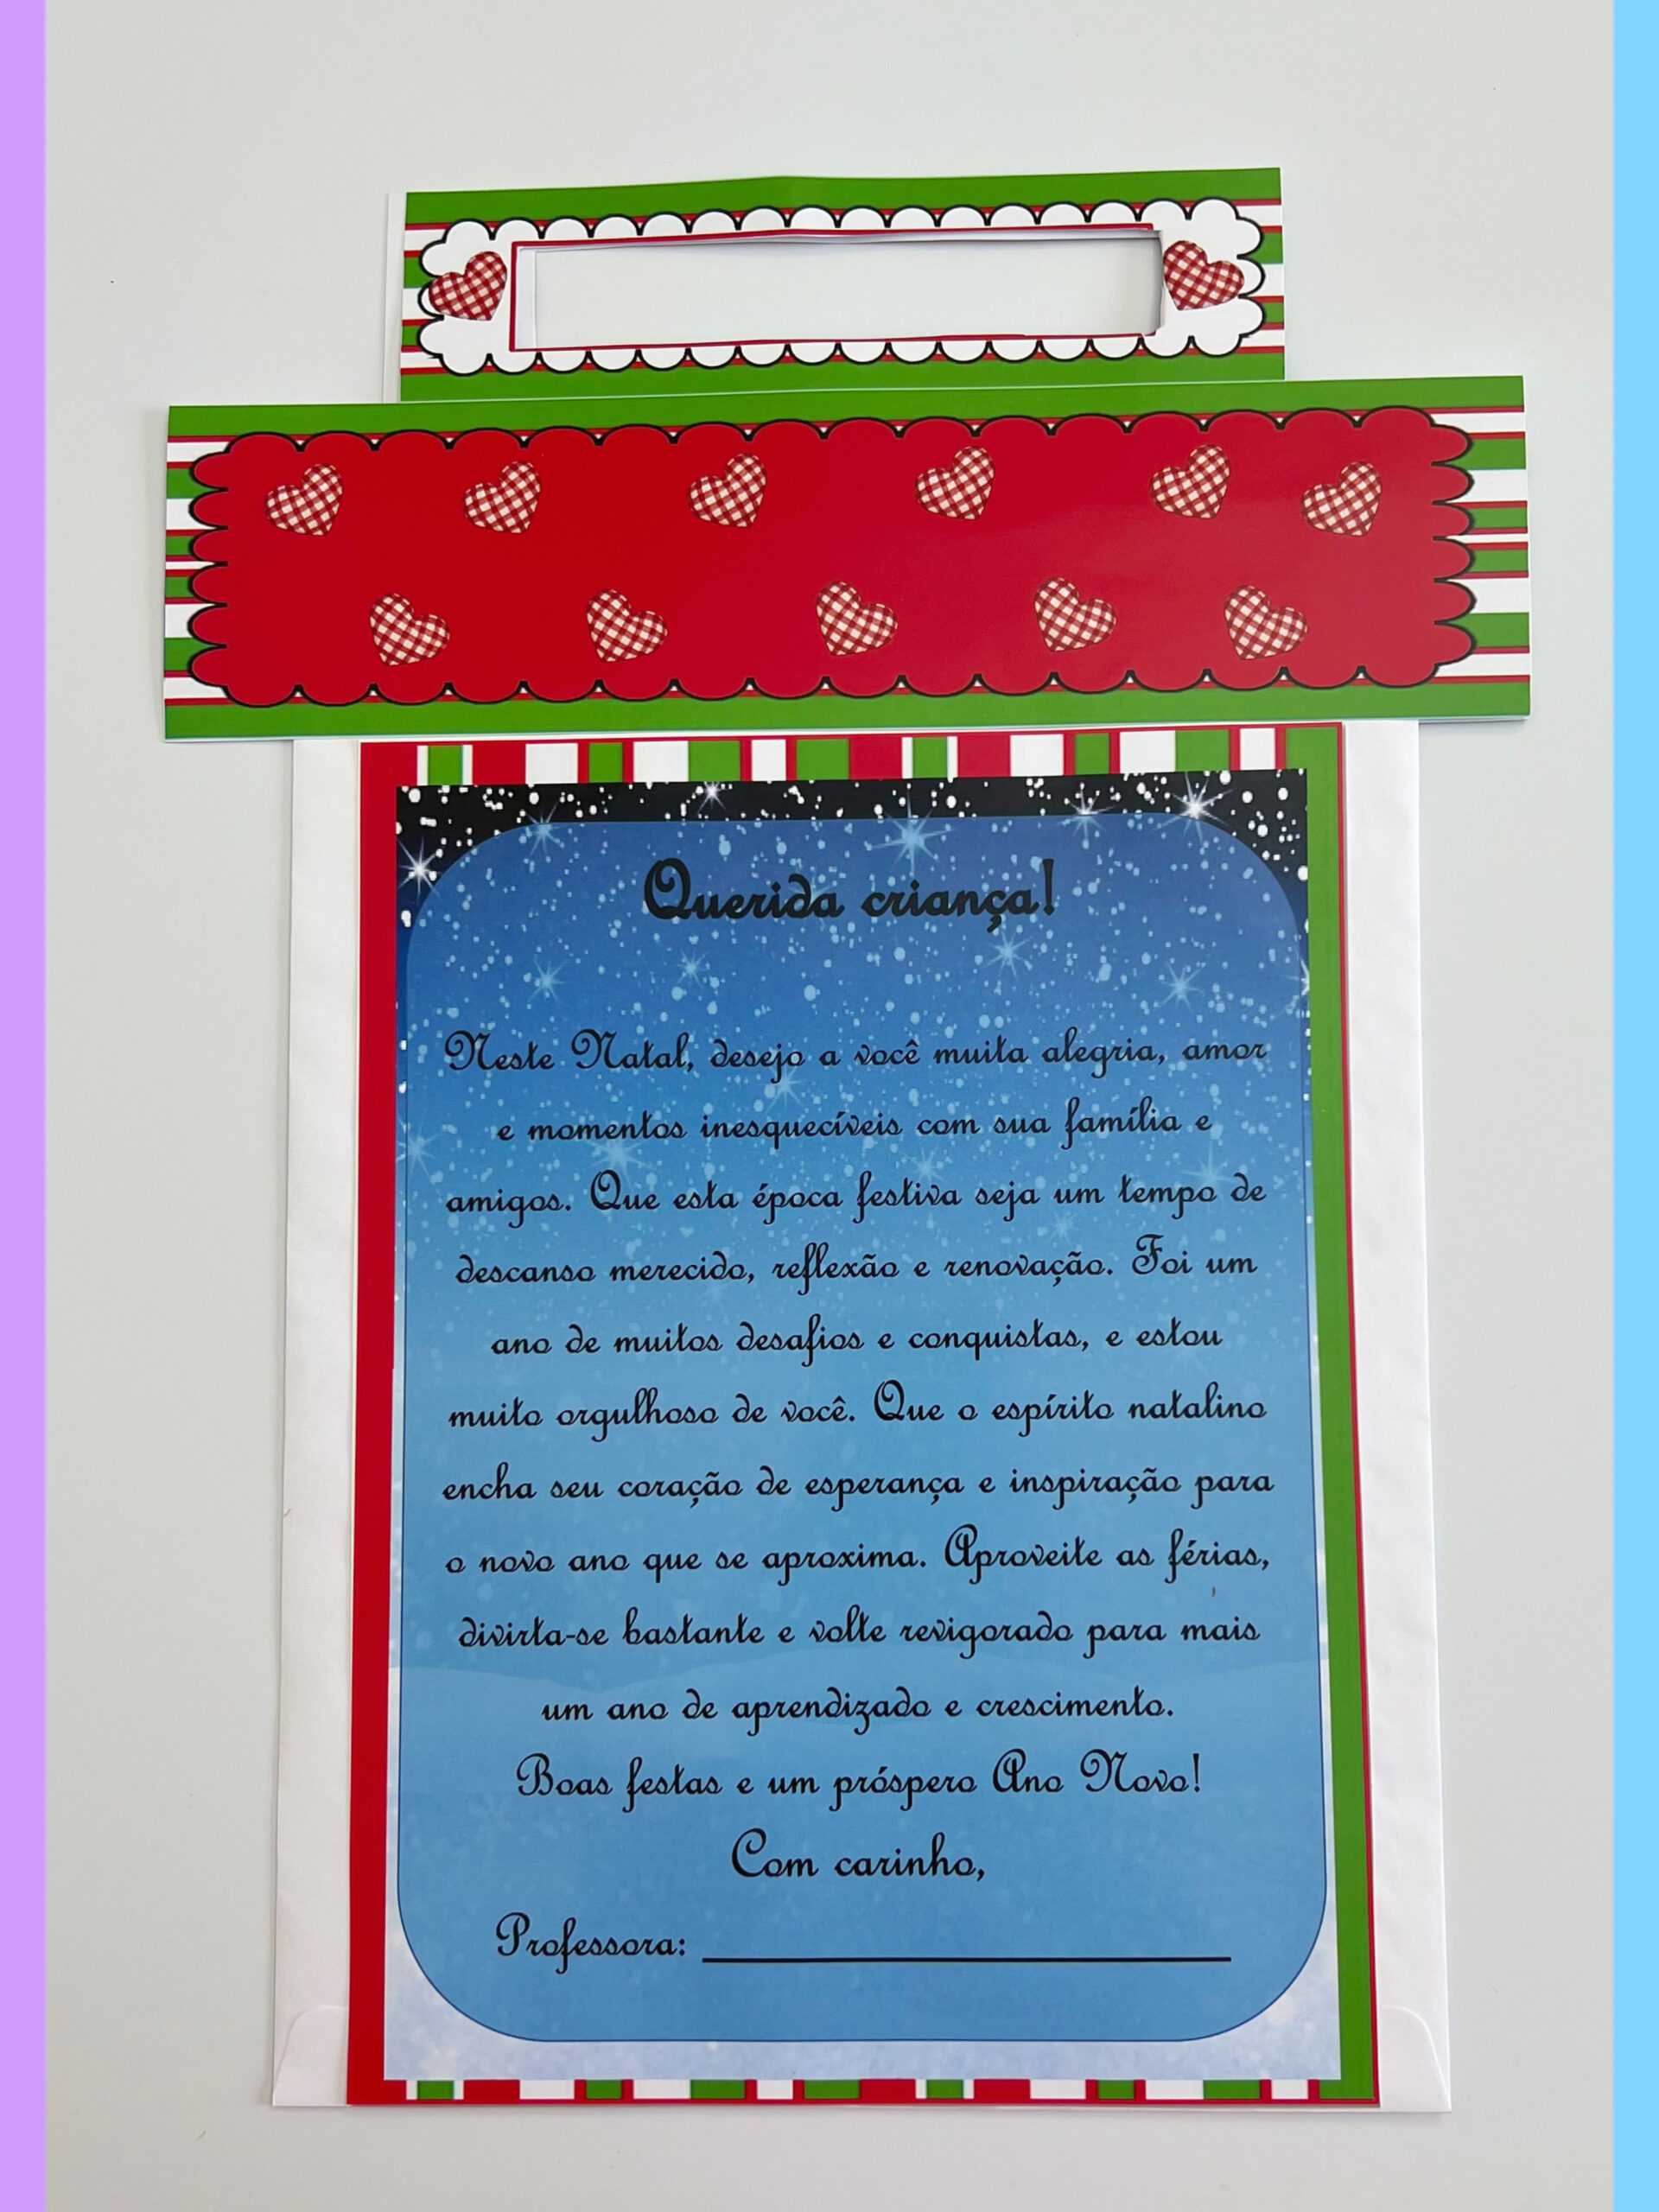 Querida criança!
Neste Natal, desejo a você muita alegria, amor
e momentos inesquecíveis com sua família e
amigos. Que esta época festiva seja um tempo de
descanso merecido, reflexão e renovação. Foi um
ano de muitos desafios e conquistas, e estou
muito orgulhoso de você. Que o espírito natalino
encha seu coração de esperança e inspiração para
o novo ano que se aproxima. Aproveite as férias,
divirta-se bastante e volte revigorado para mais
um ano de aprendizado e crescimento.
Boas festas e um próspero Ano Novo!
Com carinho,
Professora: